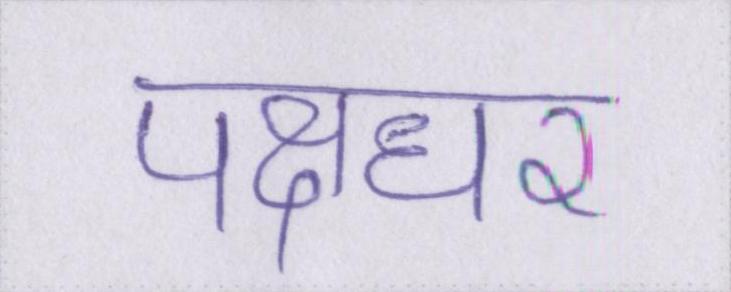 पक्षधर